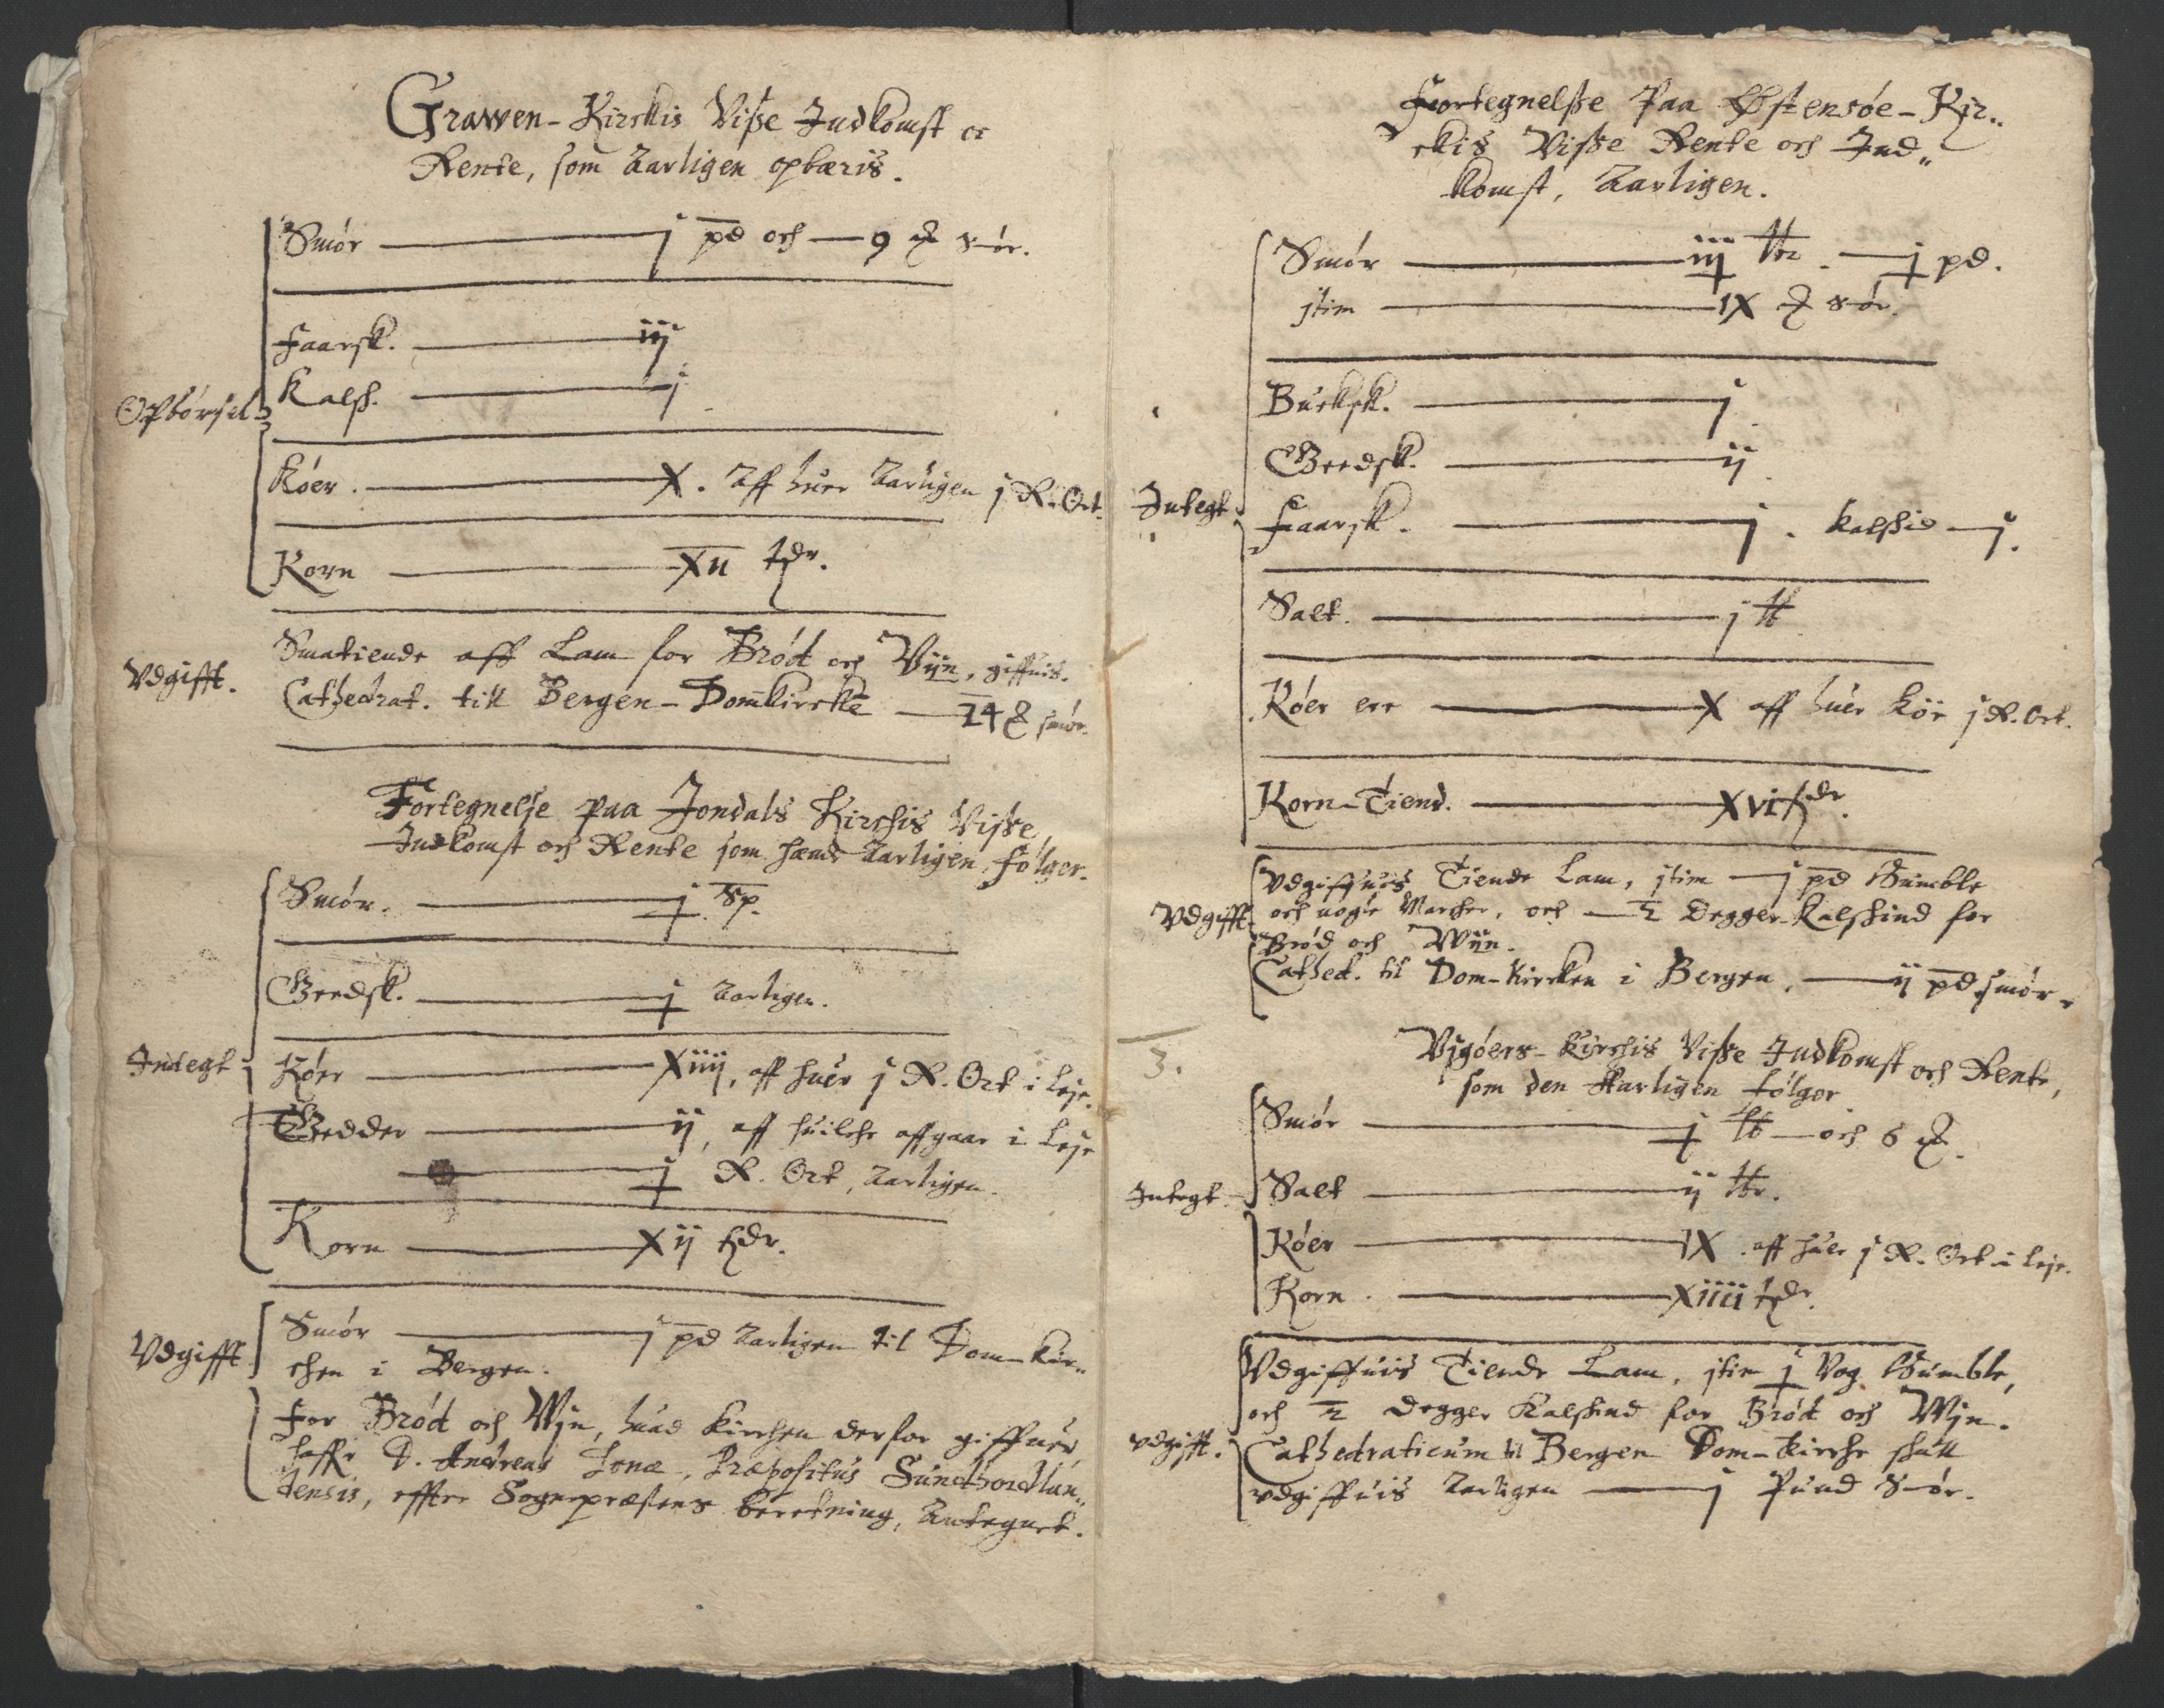 Grawen-Kirckis Viße Indkomst oc
Rente, som Aarligen opbæris.
Smór — j pd och — 9 ℔ Smór.
Faarsk. — iij
Kalsk. — j
Opbórsel
Kóer. — X. Aff huer Aarligen j R. Ort.
Korn — XII tdr.
Smatiende aff Lam for Bród och Vijn, giffuis.
Vdgifft.
Cathedrat. till Bergen-Domkircke — 24 ℔ smór.
Fortegnelse paa Jondals Kirchis Viße
Indkomst och Rente som hæmd Aarligen fólger.
Smór. — j Sp.
Geedsk. — j Aarligen.
Indtegt
Kóer — Xiiij, aff huer j R. Ort i leje.
Gedder — ij, aff huilche affgaar i leje
— j R. Ort, Aarligen.
Korn — Xij tdr.
Vdgifft
Smór — j pd Aarligen til Dom-kir-
chen i Bergen.
For Bród och Wjn, huad kirchen derfor giffuer
haffr D. Andreas Jonæ, Præpositus Sundhordlan-
densis, effter Sognepræstens beretning, Antegnet.
Fortegnelße Paa Østensóe-Kir-
ckis Viße Rente och Ind-
komst, Aarligen.
Smór — iij tr. — j pd.
jtim — IX ℔ smór.
Bucksk. — j
Geedsk. — ij
Integt
Faarsk. — j. Kalskid — j.
Salt. — j t
Kóer ere — X aff huer kór j R. Ort.
Korn-Tiend. — XVI tdr.
Vdgifft
Vdgiffuis Tiende Lam, jtim — j pd Gumble
och nogle Marcher, och — ½ Degger-Kalskind for
Bród och Wijn.
Cathed. til Dom-Kircken i Bergen, — ij pd smór
3.
Vigóers-Kirchis Viße Indkomst och Rente,
som den Aarligen fólger
Smór — j t — och 6 ℔.
Integt
Salt — ij tr.
Kóer — IX. aff huer j R. Ort i leje.
Korn. — XIIII tdr.
Vdgiffuis Tiende Lam, jtim j Vog Gumble,
och ½ Degger Kalskind for Bród och Wjn.
vdgifft.
Cathedraticum til Bergen Dom-kirche skull
vdgiffuis Aarligen — j Pund Smór.